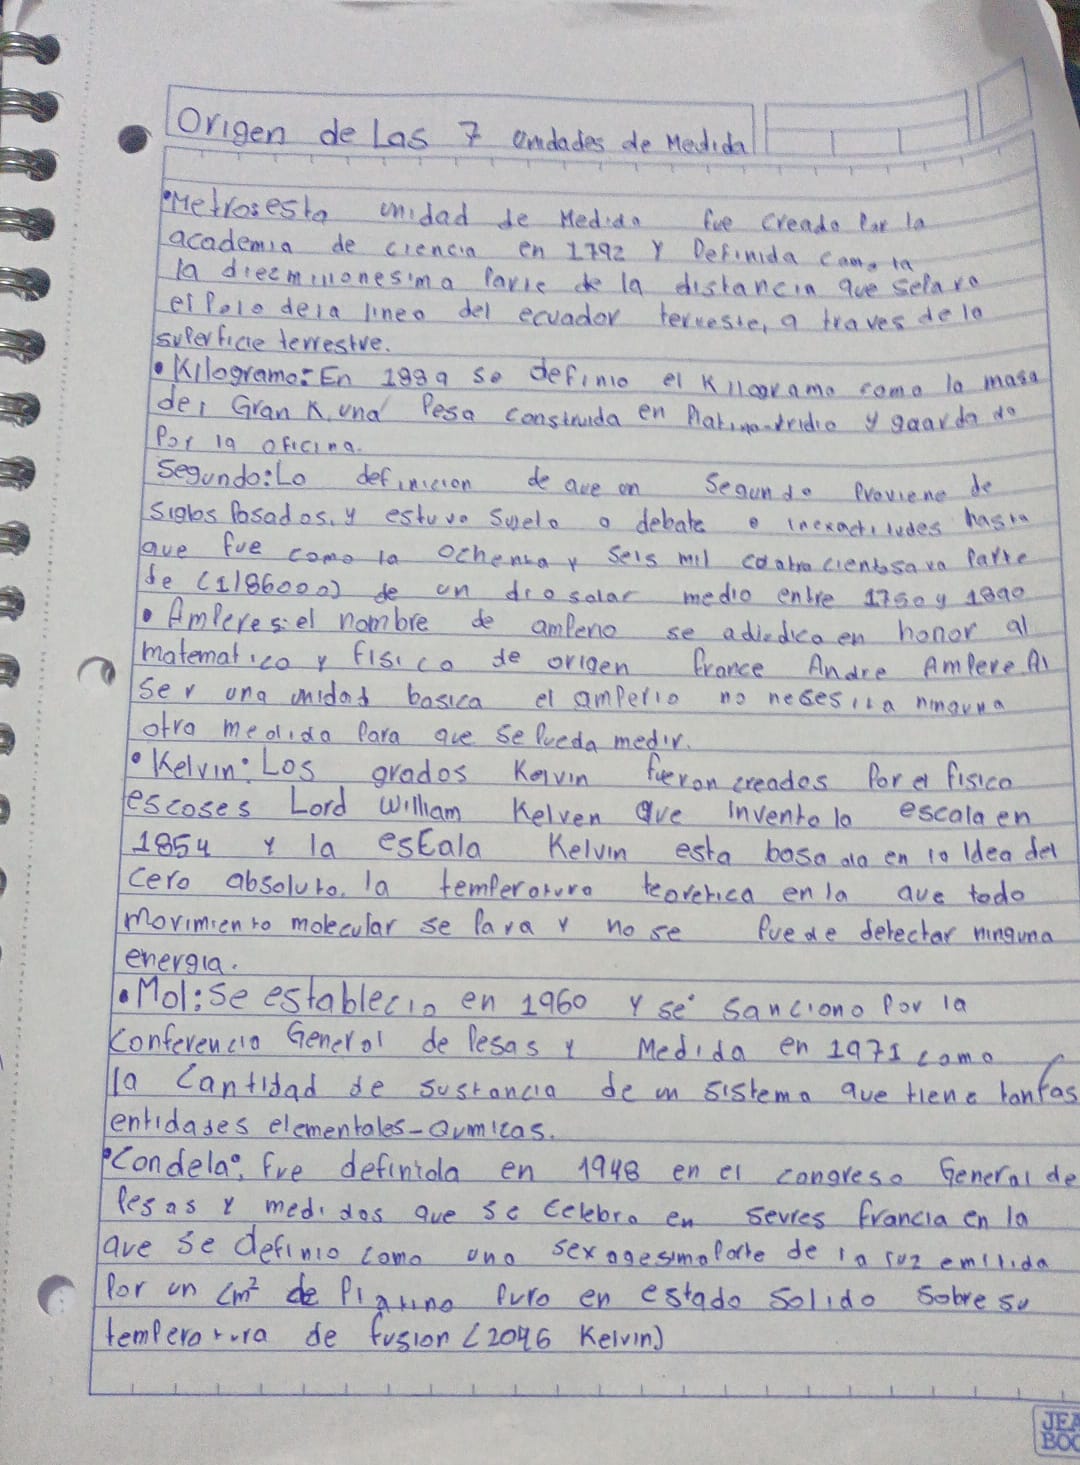 Origen de Las 7 unidades de Medida
•Metros:esta unidad de Medida fue creada Por la
academia de ciencia en 1792 Y Definida como la
la diezmillonesima Parte de la distancia que separa
el Polo dela linea del ecuador terrestre, a traves de la
superficie terrestre.
• Kilogramo: En 1889 se definio el Kilogramo como la masa
del Gran K, una Pesa construida en Platino-Iridio y guardado
Por la oficina.
Segundo: La definicion de que un Segundo Proviene de
Siglos Pasados, y estuvo sujeto a debate e inexactitudes hasta
que fue como la ochenta y seis mil cuatrocientosava Parte
de (1/86000) de un dia solar medio entre 1750 y 1890
• Amperes: el nombre de amperio se adjudica en honor al
matematico y fisico de origen france Andre Ampere. Al
Ser una unidad basica el amperio no nesesita ninguna
otra medida Para que se Pueda medir.
• Kelvin: Los grados Kelvin fueron creados Por el fisico
escoses Lord William Kelven que invento la escala en
1854 Y la esEala Kelvin esta basada en la Idea del
Cero absoluto, la temperatura teoretica en la que todo
movimiento molecular se Para y no se Puede detectar ninguna
energia.
• Mol: Se establecio en 1960 Y se sanciono Por la
Conferencia General de Pesas y Medida en 1971 como
la Cantidad de sustancia de un sistema que tiene tantas
entidades elementales-Quimicas.
• Condela: fue definida en 1948 en el congreso General de
Pesas y medidas que se celebro en sevres francia en la
que se definio como una sexagesima Parte de la luz emitida
Por un cm² de Platino Puro en estado Solido Sobre su
temperatura de fusion (2046 Kelvin)
JEA
BOO